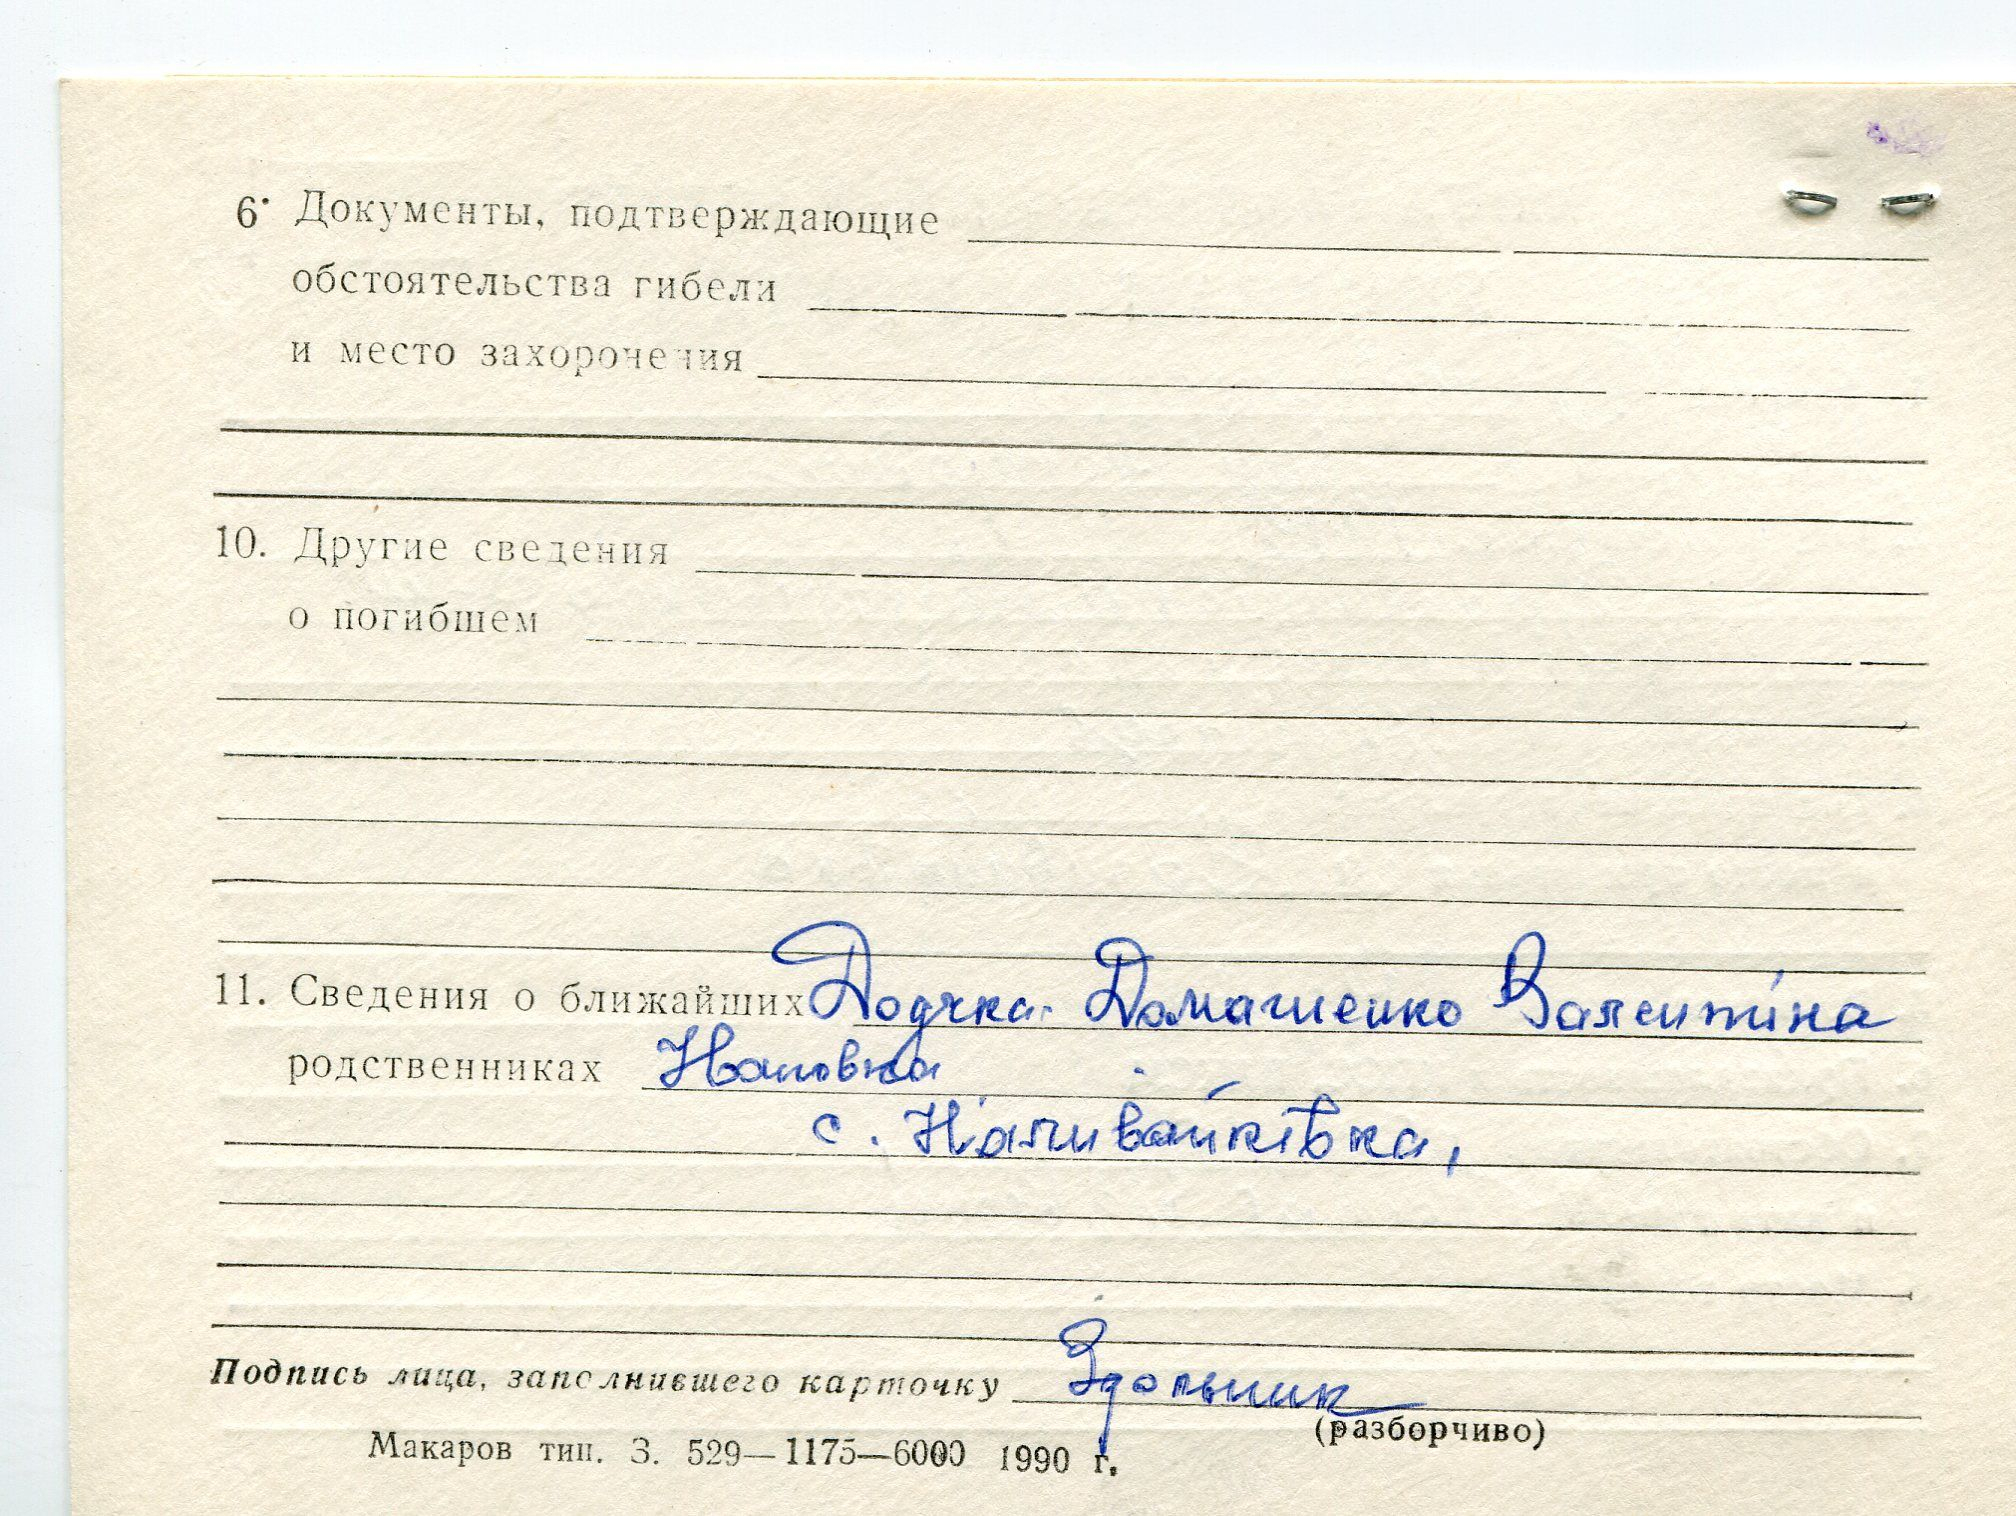 6. Документы, подтверждающие
обстоятельства гибели
и место захоронения
10. Другие сведения
о погибшем
11. Сведения о ближайших Дочка. Домашенко Валентина
родственниках Івановна
с. Наливайківка,
Подпись лица, заполнившего карточку Здольник
(разборчиво)
Макаров тип. З. 529—1175—6000 1990 г.